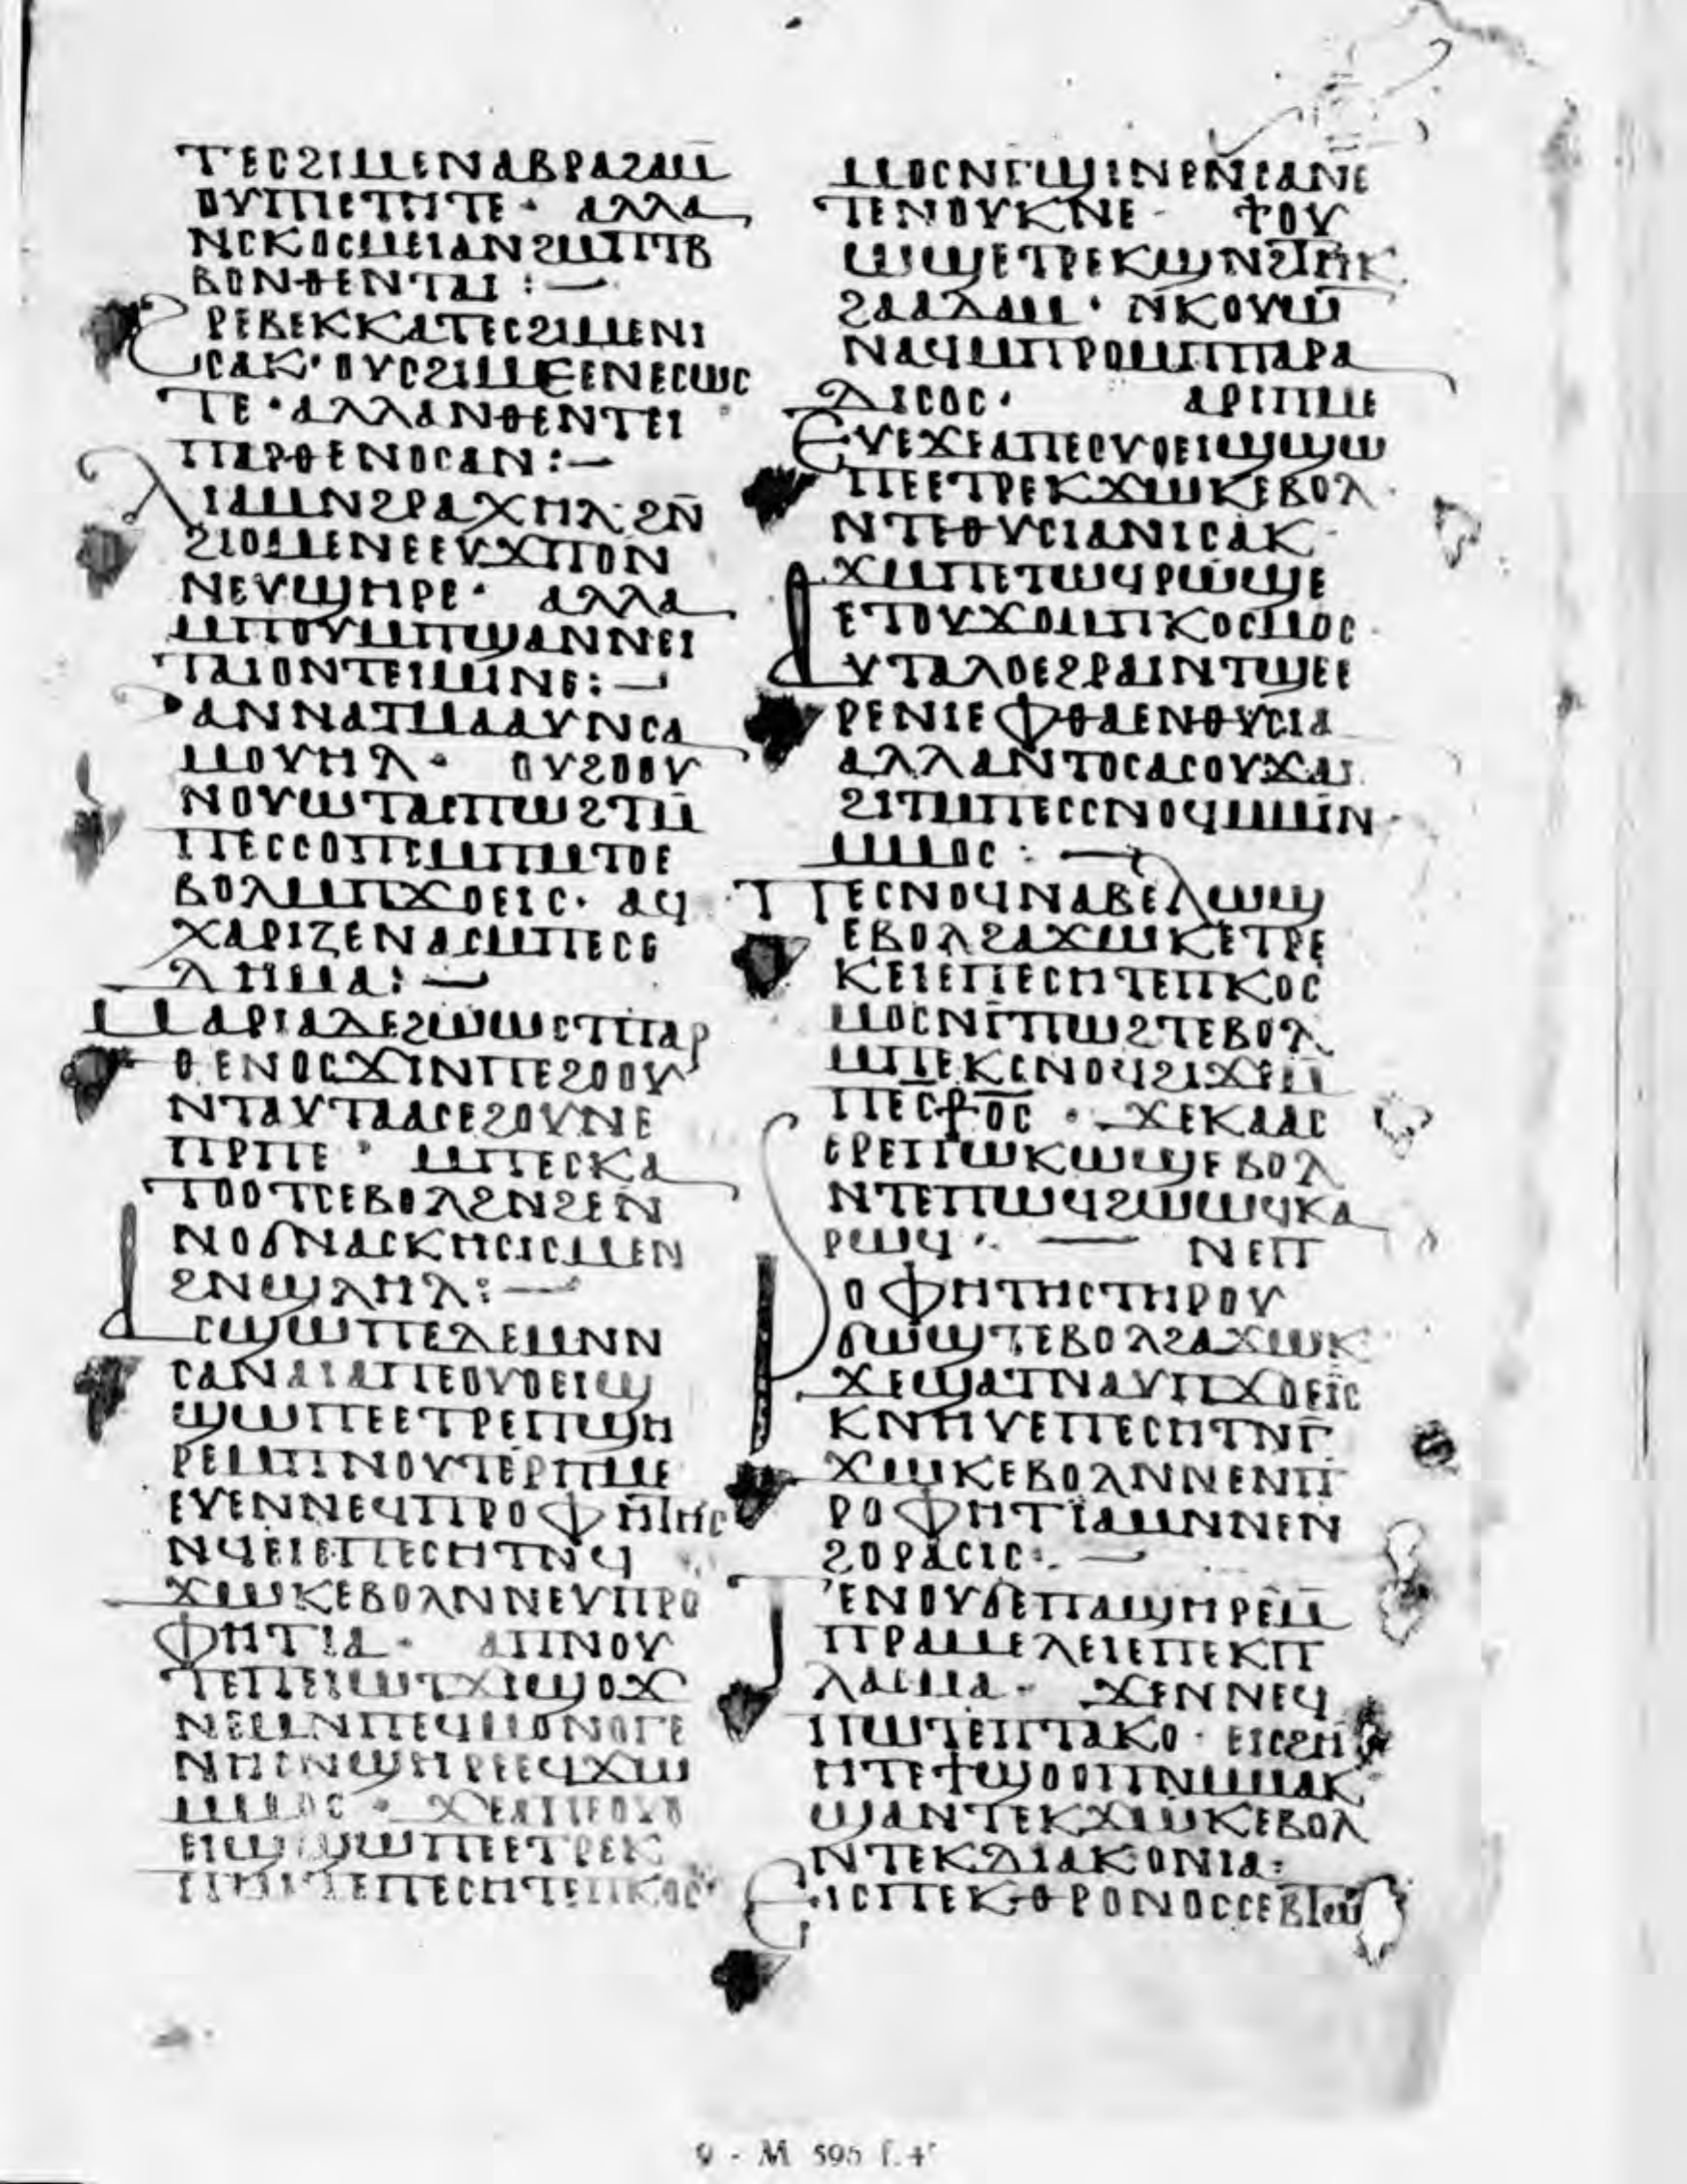 ⲧⲉⲥϩⲓⲙⲉⲛⲁⲃⲣⲁϩⲁⲙ
ⲟⲩⲡⲓⲥⲧⲏⲧⲉ· ⲁⲗⲗⲁ
ⲛⲥⲕⲟⲥⲙⲉⲓⲁⲛϩⲙⲡⲧⲃ
ⲃⲟⲛⲑⲉⲛⲧⲁⲓ:—
ϩⲣⲉⲃⲉⲕⲕⲁⲧⲉⲥϩⲓⲙⲉⲛⲓ
ⲥⲁⲕ·ⲟⲩⲥϩⲓⲙⲉⲉⲛⲉⲥⲱⲥ
ⲧⲉ·ⲁⲗⲗⲁⲛⲑⲉⲛⲧⲉⲓ
ⲡⲁⲣⲑⲉⲛⲟⲥⲁⲛ:—
ⲗⲓⲁⲙⲛϩⲣⲁⲭⲏⲗ·ϩⲛ̅
ϩⲓⲟⲙⲉⲛⲉⲉⲩϫⲡⲟⲛ
ⲛⲉⲩϣⲏⲣⲉ· ⲁⲗⲗⲁ
ⲙⲡⲟⲩⲙⲡϣⲁⲛⲛⲉⲓ
ⲧⲁⲓⲟⲛⲧⲉⲓⲙⲓⲛⲉ:—
ⲁⲛⲛⲁⲧⲙⲁⲁⲩⲛⲥⲁ
ⲙⲟⲩⲏⲗ· ⲟⲩϩⲟⲟⲩ
ⲛⲟⲩⲱⲧⲁⲥⲡⲱϩⲧⲙ̅
ⲡⲉⲥⲥⲟⲡⲥⲙⲡⲙⲧⲟⲉ
ⲃⲟⲗⲙⲡϫⲟⲉⲓⲥ· ⲁϥ
ⲭⲁⲣⲓⲍⲉⲛⲁⲥⲙⲡⲉⲥⲉ
ⲗⲏⲙⲁ:—
ⲙⲁⲣⲓⲁⲇⲉϩⲱⲱⲥⲧⲡⲁⲣ
ⲑⲉⲛⲟⲥϫⲓⲛⲡⲉϩⲟⲟⲩ
ⲛⲧⲁⲩⲧⲁⲁⲥⲉϩⲟⲩⲛⲉ
ⲡⲣⲡⲉ· ⲙⲡⲉⲥⲕⲁ
ⲧⲟⲟⲧⲥⲉⲃⲟⲗϩⲛϩⲉⲛ
ⲛⲟϭⲛⲁⲥⲕⲏⲥⲓⲥⲙⲉⲛ
ϩⲛϣⲗⲏⲗ:—
ⲁⲥϣⲱⲡⲉⲇⲉⲙⲛⲛ
ⲥⲁⲛⲁⲓⲁⲡⲉⲟⲩⲟⲉⲓϣ
ϣⲱⲡⲉⲉⲧⲣⲉⲡϣⲏ
ⲣⲉⲙⲡⲛⲟⲩⲧⲉⲣⲡⲙⲉ
ⲉⲩⲉⲛⲛⲉϥⲡⲣⲟⲫⲏⲧⲏⲥ
ⲛϥⲉⲓⲉⲡⲉⲥⲏⲧⲛϥ
ϫⲱⲕⲉⲃⲟⲗⲛⲛⲉⲩⲡⲣⲟ
ⲫⲏⲧⲓⲁ· ⲁⲡⲛⲟⲩ
ⲧⲉⲡⲉⲓⲱⲧϫⲓϣⲟϫ
ⲛⲉⲙⲛⲡⲉϥⲙⲟⲛⲟⲅⲉ
ⲛⲏⲥⲛϣⲏⲣⲉⲉϥϫⲱ
ⲙⲙⲟⲥ· ϫⲉⲁⲡⲉⲟⲩⲟ
ⲉⲓϣϣⲱⲡⲉⲉⲧⲣⲉⲕ
ⲉⲡⲉⲥⲏⲧⲉⲡⲕⲟⲥ
ⲙⲟⲥⲛⲅϣⲓⲛⲉⲛⲥⲁⲛⲉ
ⲧⲉⲛⲟⲩⲕⲛⲉ· ϯⲟⲩ
ⲱϣⲉⲧⲣⲉⲕϣⲛϩⲧⲏⲕ
ϩⲁⲁⲇⲁⲙ· ⲛⲕⲟⲩⲱⲛ̅
ⲛⲁϥⲙⲡⲣⲟⲙⲡⲡⲁⲣⲁ
ⲇⲓⲥⲟⲥ· ⲁⲣⲓⲡⲙⲉ
ⲉⲩⲉϫⲉⲁⲡⲉⲟⲩⲟⲉⲓϣϣⲱ
ⲡⲉⲉⲧⲣⲉⲕϫⲱⲕⲉⲃⲟⲗ·
ⲛⲧⲉⲑⲩⲥⲓⲁⲛⲓⲥⲁⲕ·
ϫⲙⲡⲉⲧⲱϥⲣⲱϣⲉ
ⲉⲧⲟⲩϫⲟⲙⲡⲕⲟⲥⲙⲟⲥ·
ⲁⲩⲧⲁⲗⲟⲉϩⲣⲁⲓⲛⲧϣⲉⲉ
ⲣⲉⲛⲓⲉⲫⲑⲁⲉⲛⲑⲩⲥⲓⲁ
ⲁⲗⲗⲁⲛⲧⲟⲥⲁⲥⲟⲩϫⲁⲓ
ϩⲓⲧⲙⲡⲉⲥⲥⲛⲟϥⲙⲙⲓⲛ·
ⲙⲙⲟⲥ:—
ⲡⲉⲥⲛⲟϥⲛⲁⲃⲉⲗⲱϣ
ⲉⲃⲟⲗϩⲁϫⲱⲕⲉⲧⲣⲉ
ⲕⲉⲓⲉⲡⲉⲥⲏⲧⲉⲡⲕⲟⲥ
ⲙⲟⲥⲛⲅ̅ⲡⲱϩⲧⲉⲃⲟⲗ
ⲙⲡⲉⲕⲥⲛⲟϥϩⲓϫⲉⲙ̅
ⲡⲉⲥ⳨ⲟⲥ· ϫⲉⲕⲁⲁⲥ
ⲉⲣⲉⲡⲱⲕⲱϣⲉⲃⲟⲗ
ⲛⲧⲉⲡⲱϥϩⲱⲱϥⲕⲁ
ⲣⲱϥ·.— ⲛⲉⲡⲣ
ⲟⲫⲏⲧⲏⲥⲧⲏⲣⲟⲩ
ϭⲱϣⲧⲉⲃⲟⲗϩⲁϫⲱⲕ·
ϫⲉϣⲁⲧⲛⲁⲩⲡϫⲟⲉⲓⲥ
ⲕⲛⲏⲩⲉⲡⲉⲥⲏⲧⲛⲅ̅
ϫⲱⲕⲉⲃⲟⲗⲛⲛⲉⲛⲡ
ⲣⲟⲫⲏⲧⲓⲁⲙⲛⲛⲉⲛ
ϩⲟⲣⲁⲥⲓⲥ:.—
ⲧⲉⲛⲟⲩϭⲉⲡⲁϣⲏⲣⲉⲙ̅
ⲡⲣⲁⲙⲉⲗⲉⲓⲉⲡⲉⲕⲡ
ⲗⲁⲥⲙⲁ· ϫⲉⲛⲛⲉϥ
ⲡⲱⲧⲉⲡⲧⲁⲕⲟ· ⲉⲓⲥϩⲏ
ⲏⲧⲉϯϣⲟⲟⲡⲛⲙⲙⲁⲕ
ϣⲁⲛⲧⲉⲕϫⲱⲕⲉⲃⲟⲗ
ⲛⲧⲉⲕⲇⲓⲁⲕⲟⲛⲓⲁ:
ⲉⲓⲥⲡⲉⲕⲑⲣⲟⲛⲟⲥⲥⲉⲃⲧⲱ
9 - M 595 f.4ʳ